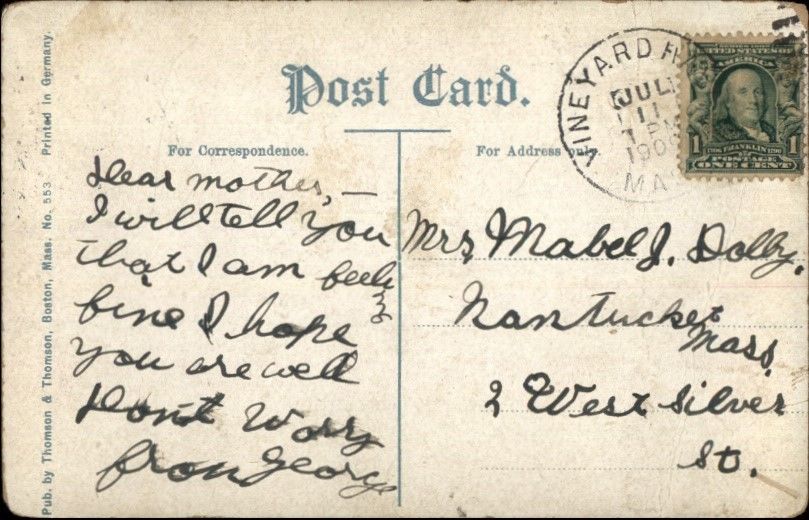 Post Card.
For Correspondence.
For Address only.
Dear mother, —
I will tell you
that I am feeling
fine I hope
you are well
Dont Worry
from George
Mrs Mabel J. Dolby.
Nantucket
Mass.
2 West Silver
St.
VINEYARD
JUL
11
PM
MAS
UNITED STATES OF
AMERICA
1 FRANKLIN 1
POSTAGE
ONE CENT
Pub. by Thomson & Thomson, Boston, Mass. No. 553 Printed in Germany.